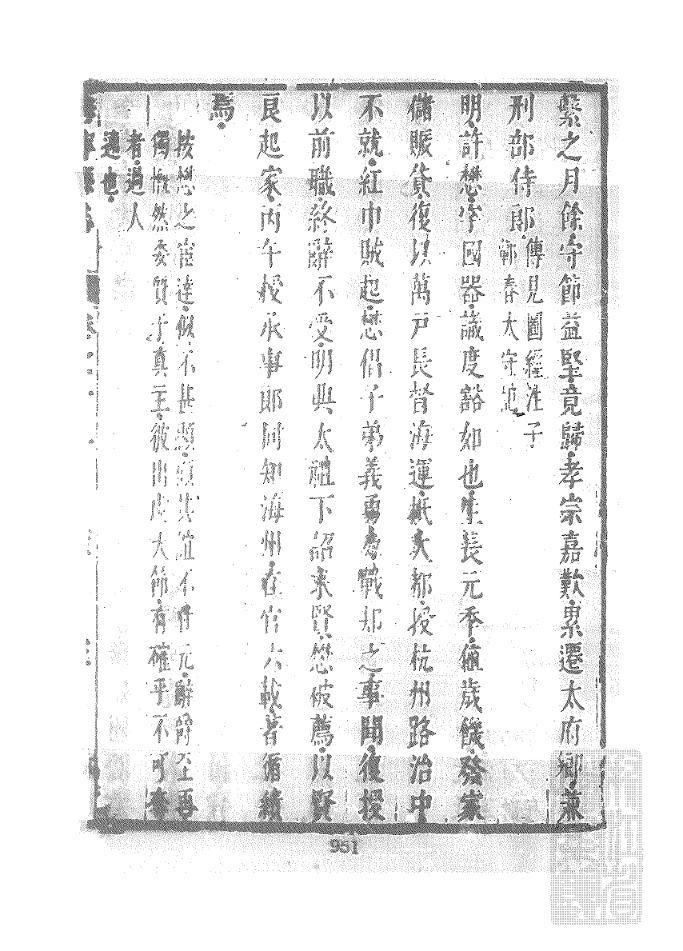 繫之月餘守節益堅竟歸孝宗嘉歎累遷太府卿兼
刑部侍郎傳見圖經注子
鄞春太守
明許懋字國器識度豁如也生長元季值歲饑發家
儲賑貸復以萬戶長督海運抵大都授杭州路治中
不就紅巾賊起懋倡子弟義勇戰却之事聞復授
以前職終辭不受明興太祖下詔求賢懋被薦以賢
良起家丙午授承事郎同知海州在官六載著循績
焉
按懋之宦達似不甚顯其不元辭至再
獨慨然委質于真主彼出處大節有確乎不可奪
者過人
遠也
951